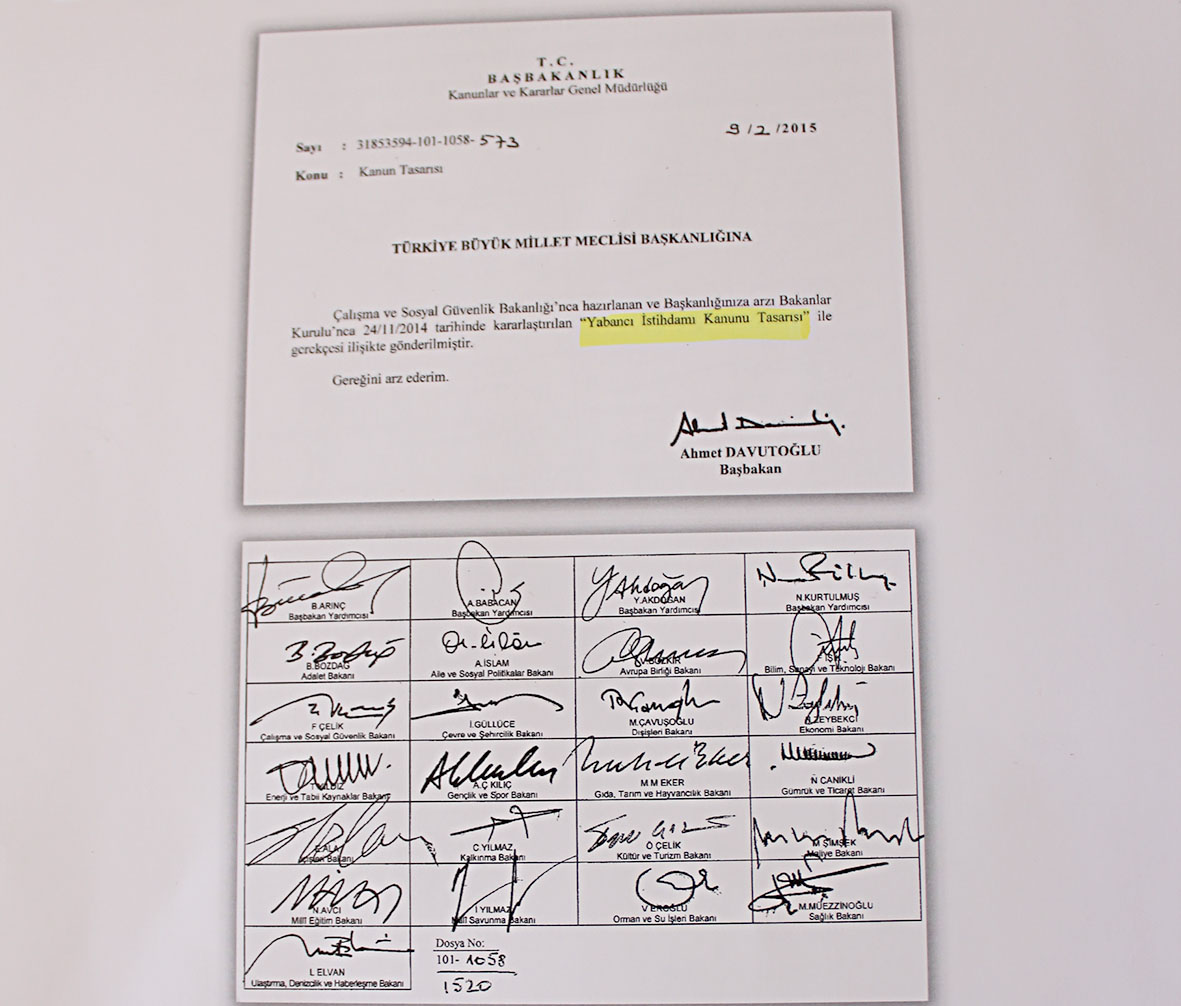 T.C.
BAŞBAKANLIK
Kanunlar ve Kararlar Genel Müdürlüğü
9/2/2015
Sayı : 31853594-101-1058-573
Konu : Kanun Tasarısı
TÜRKİYE BÜYÜK MİLLET MECLİSİ BAŞKANLIĞINA
Çalışma ve Sosyal Güvenlik Bakanlığı'nca hazırlanan ve Başkanlığınıza arzı Bakanlar
Kurulu'nca 24/11/2014 tarihinde kararlaştırılan "Yabancı İstihdamı Kanunu Tasarısı" ile
gerekçesi ilişikte gönderilmiştir.
Gereğini arz ederim.
Ahmet DAVUTOĞLU
Başbakan
B.ARINÇ
Başbakan Yardımcısı
A.BABACAN
Başbakan Yardımcısı
Y.AKDOĞAN
Başbakan Yardımcısı
N.KURTULMUŞ
Başbakan Yardımcısı
B.BOZDAĞ
Adalet Bakanı
A.İSLAM
Aile ve Sosyal Politikalar Bakanı
V.BOZKIR
Avrupa Birliği Bakanı
Bilim, Sanayi ve Teknoloji Bakanı
F ÇELİK
Çalışma ve Sosyal Güvenlik Bakanı
İ.GÜLLÜCE
Çevre ve Şehircilik Bakanı
M.ÇAVUŞOĞLU
Dışişleri Bakanı
N.ZEYBEKCİ
Ekonomi Bakanı
Enerji ve Tabii Kaynaklar Bakanı
A.Ç KILIÇ
Gençlik ve Spor Bakanı
M M EKER
Gıda, Tarım ve Hayvancılık Bakanı
N CANİKLİ
Gümrük ve Ticaret Bakanı
E.ALA
İçişleri Bakanı
C.YILMAZ
Kalkınma Bakanı
Ö ÇELİK
Kültür ve Turizm Bakanı
M ŞİMŞEK
Maliye Bakanı
N.AVCI
Millî Eğitim Bakanı
İ YILMAZ
Millî Savunma Bakanı
V EROĞLU
Orman ve Su İşleri Bakanı
M.MÜEZZİNOĞLU
Sağlık Bakanı
L ELVAN
Ulaştırma, Denizcilik ve Haberleşme Bakanı
Dosya No:
101- 1058
1520